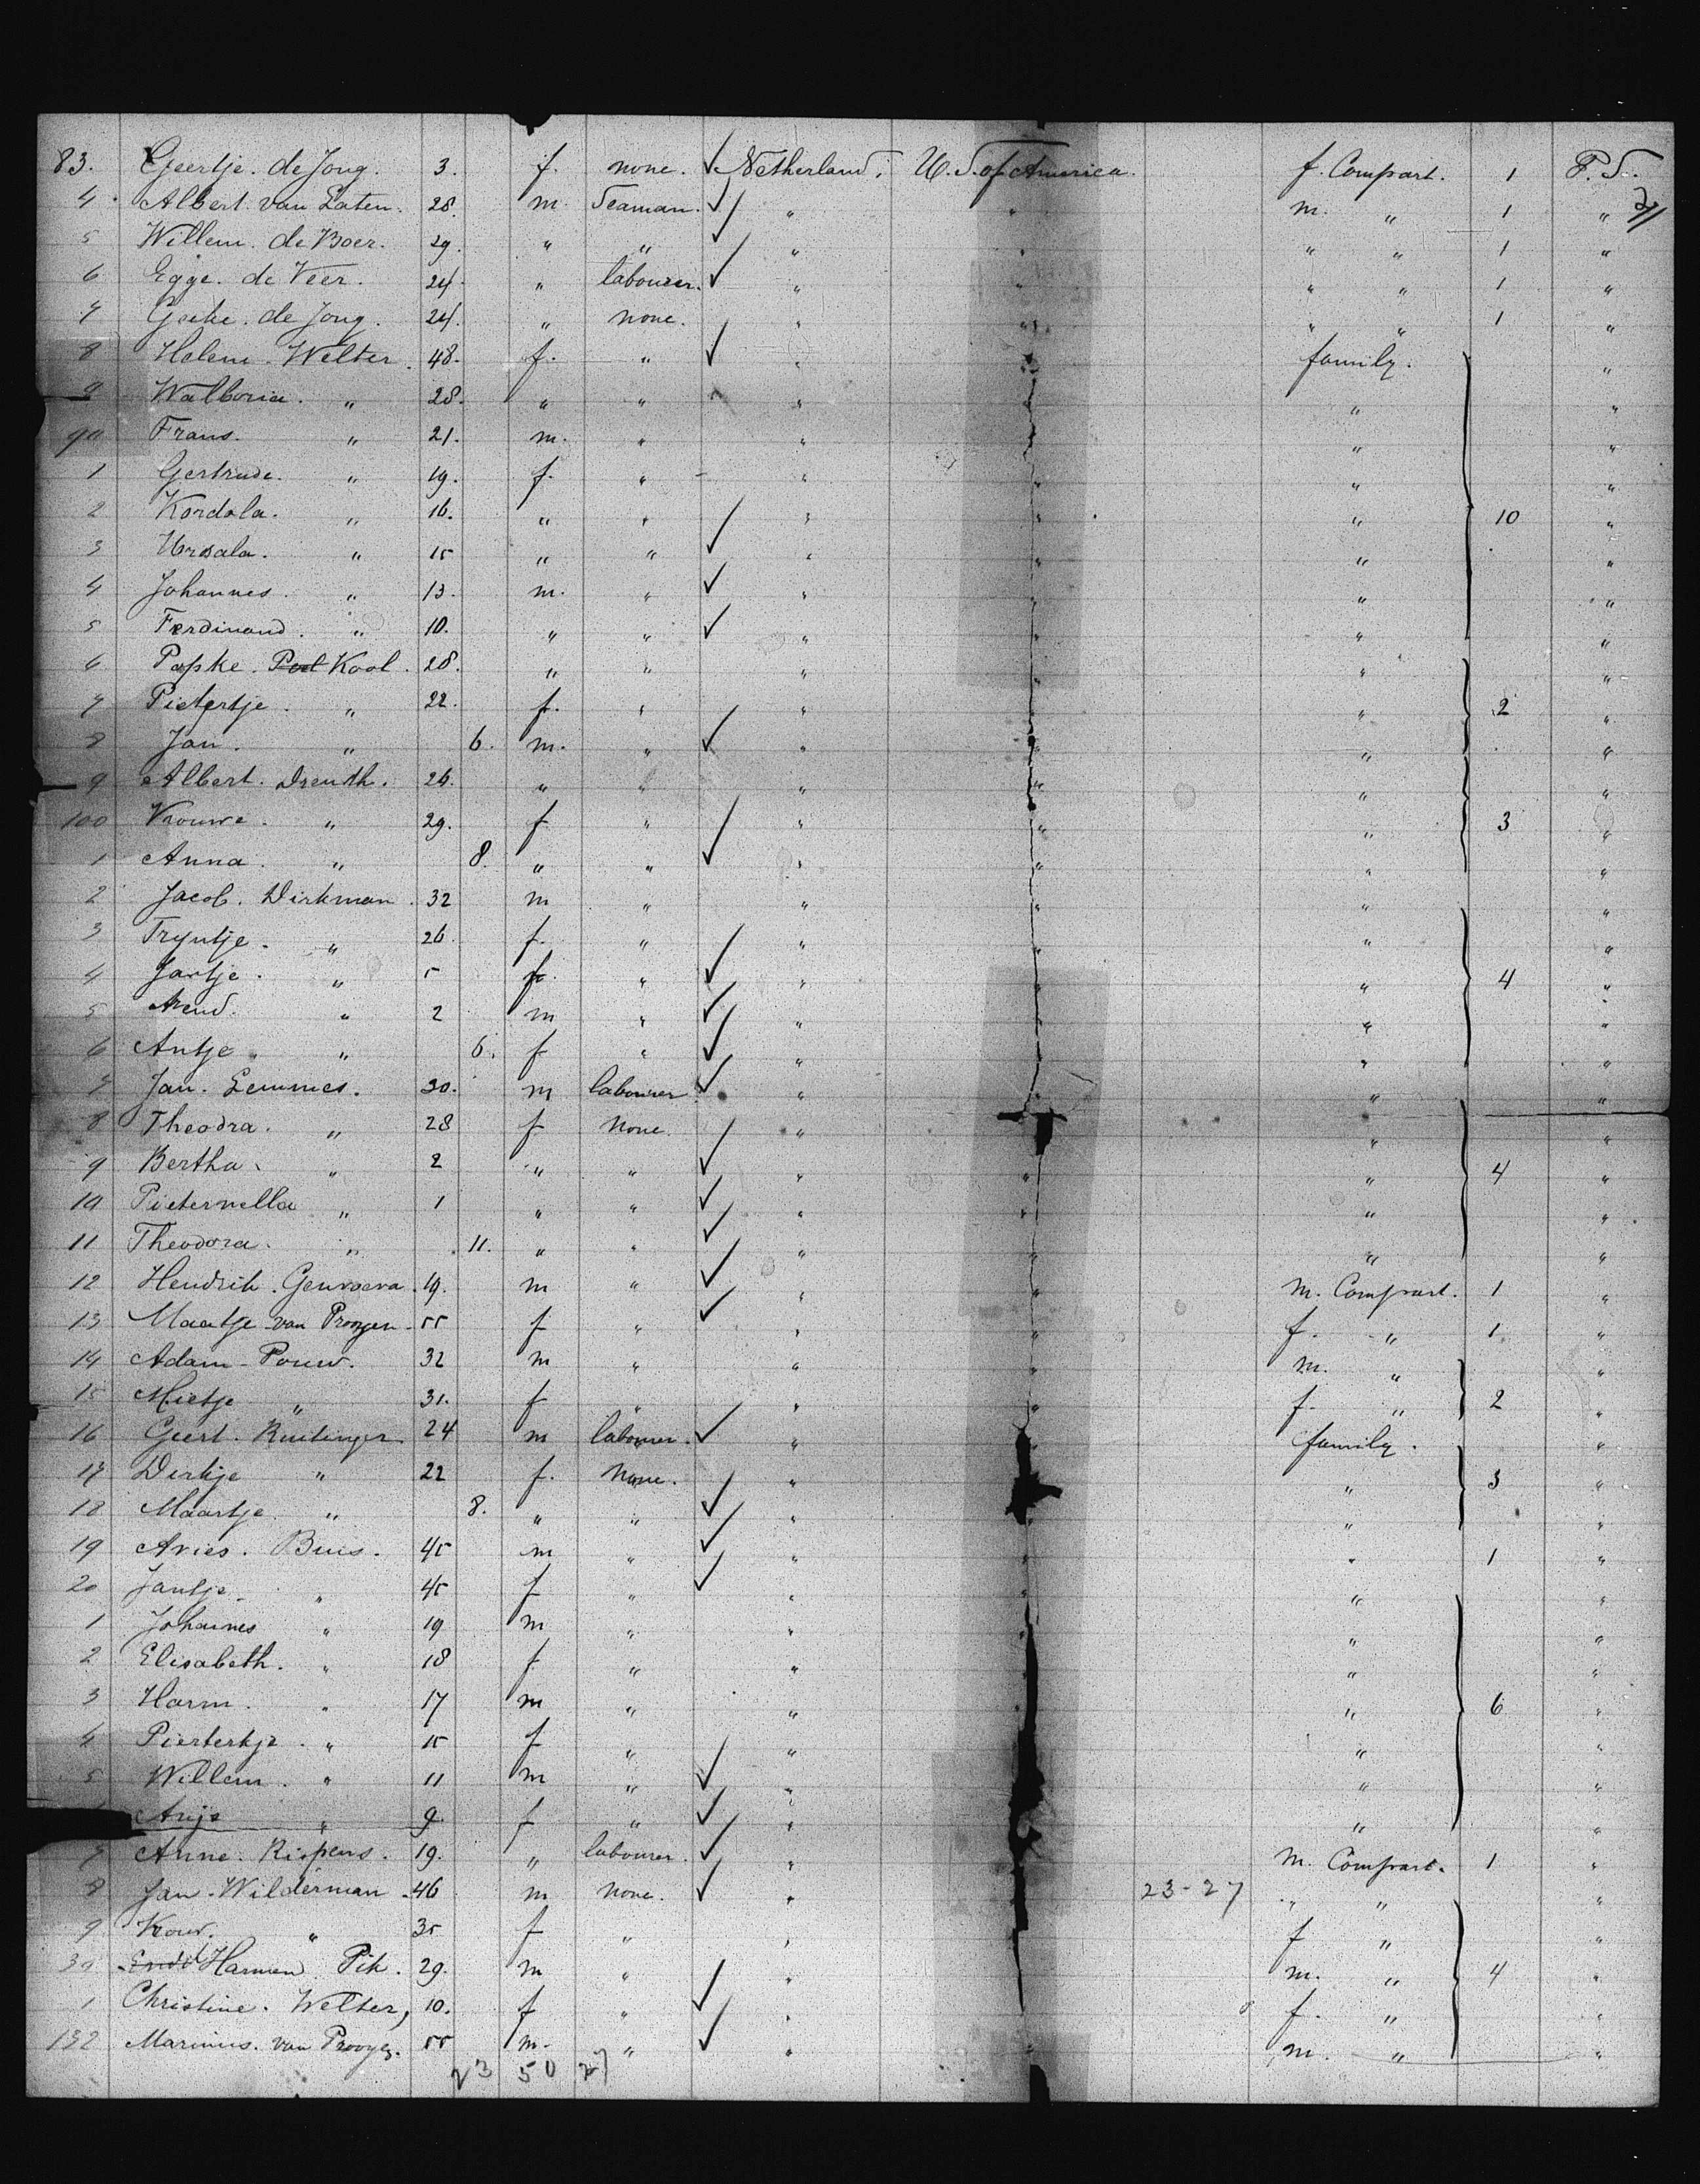 83. Geertje. de Jong. 3. f. none. Netherland. U. S. of America. f. Compart. 1 P. S.
4 Albert van Laten. 28. m. Seaman. " " m. " 1 "
5 Willem. de Boer. 29. " " " " " " 1 "
6 Egge. de Veer. 24. " labourer. " " " " 1 "
7 Geeke. de Jong. 24. " none. " " " " 1 "
8 Helene Welter. 48. f. " " " family. "
9 Walboria. " 28. " " " " " "
90 Frans. " 21. m. " " " " "
1 Gertrude. " 19. f. " " " " "
2 Kordola. " 16. " " " " " 10 "
3 Ursala. " 15 " " " " " "
4 Johannes. " 13. m. " " " " "
5 Ferdinand. " 10. " " " " " "
6 Popke. Kool. 28. " " " " " "
7 Pietertje. " 22. f. " " " " 2 "
8 Jan. " 6. m. " " " " "
9 Albert. Drenth. 26. " " " " " "
100 Vrouwe. " 29. f " " " " 3 "
1 Anna. " 8. " " " " " "
2 Jacob. Dirkman. 32 m " " " " "
3 Tryntje. " 26. f. " " " " "
4 Jantje. " 5 f. " " " " 4 "
5 Arend. " 2 m " " " " "
6 Antje " 6. f " " " " "
7 Jan. Lemmes. 30. m labourer " " " "
8 Theodra. " 28 f none. " " "
9 Bertha. " 2 " " " " " 4 "
10 Pieternella " 1 " " " " " "
11 Theodora. " 11. " " " " " "
12 Hendrik. 19. m " " " m. Compart. 1 "
13 Maatje van Prooyen. 55 f " " " f. " 1 "
14 Adam Pouw. 32 m " " " m. " "
15 Mietje " 31. f " " " f. " 2 "
16 Geert. Ruitinger. 24 m labourer. " " family. "
17 Dirkje " 22 f. none. " " 3 "
18 Maartje. " 8. " " " " " "
19 Aries. Buis. 45 m " " " " 1 "
20 Jantje " 45 f " " " " "
1 Johannes " 19 m " " " " "
2 Elisabeth. " 18 f " " " "
3 Harm. " 17 m " " " 6 "
4 Piertertje. " 15 f " " " "
5 Willem. " 11 m " " " "
Arija " 9. f " " " "
7 Anne. Rispens. 19. " labourer. " m. Compart. 1 "
8 Jan. Wilderman. 46 m none. " 23-27 " " "
9 Vrouw. " 35 f " " f " "
30 Harmen Pik. 29. m " " m. " 4 "
1 Christine. Welter, 10. f " " f. " "
132 Marinus. van Prooyen. 55 m. " " " m. " "
23 50 27